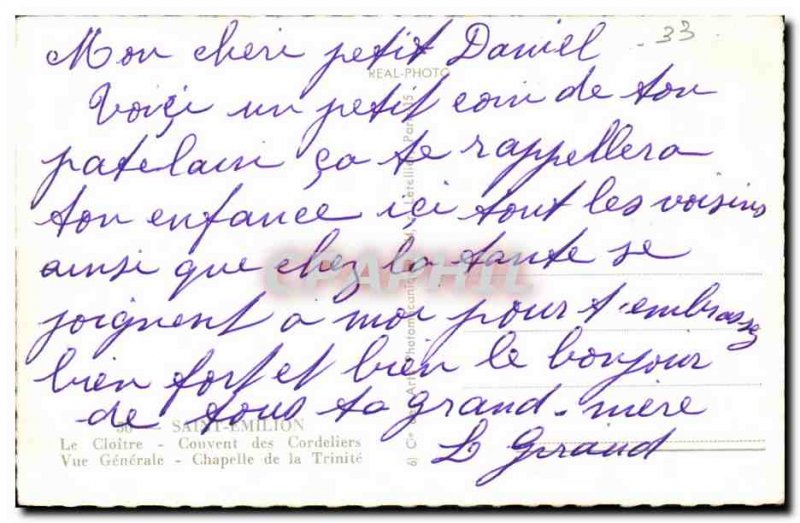 33
Mon cheri petit Daniel
REAL-PHOTO
Voiçi un petit coin de ton
patelain ça te rappellera
ton enfance içi tout les voisins
ainsi que chez la tante se
CPAPHIL
joignent a moi pour t-embrassez
bien fort et bien le bonjour
de tous ta grand-mère
L Giraud
30 - SAINT-EMILION
Le Cloître - Couvent des Cordeliers
Vue Générale - Chapelle de la Trinité